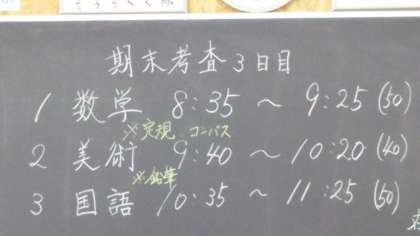 期末考査3日目
1 数学 8:35 ～ 9:25 (50)
※定規 コンパス
2 美術 9:40 ～ 10:20 (40)
※鉛筆
3 国語 10:35 ～ 11:25 (50)